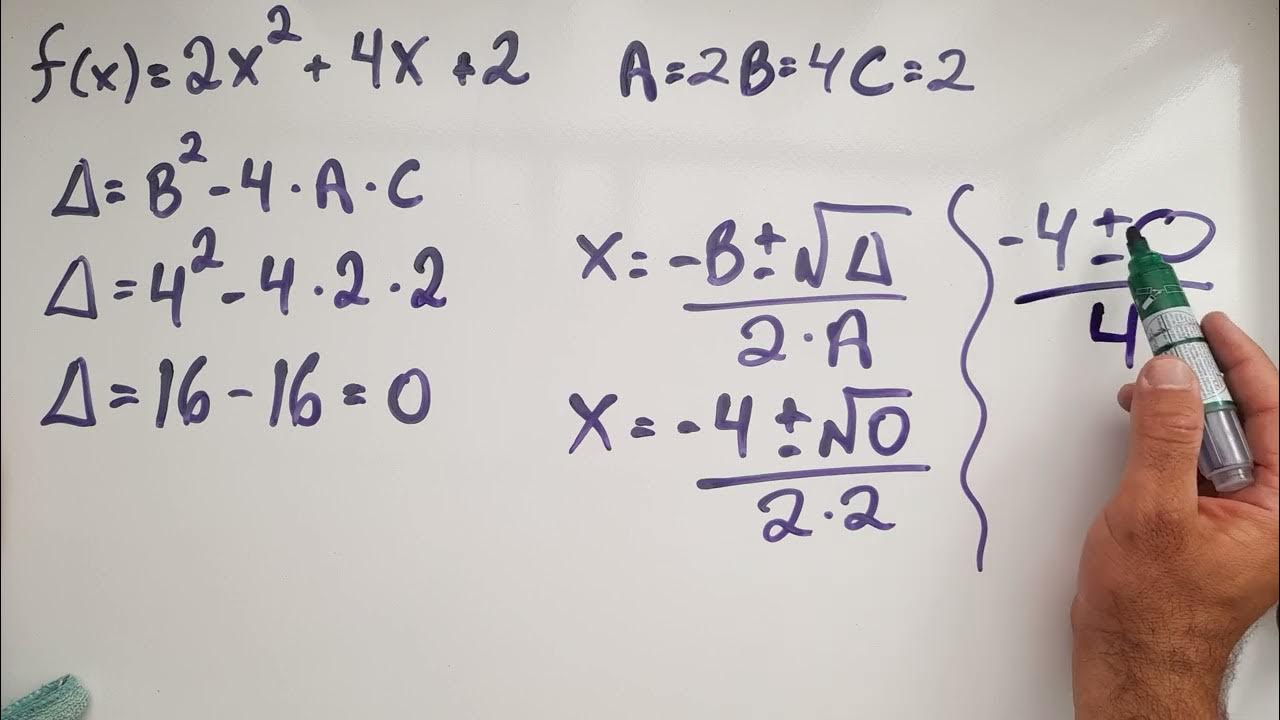 f(x)=2x²+4x+2
A=2 B=4 C=2
Δ=B²-4·A·C
Δ=4²-4·2·2
Δ=16-16=0
X=-B±√Δ
2·A
X=-4±√0
2·2
-4±0
4